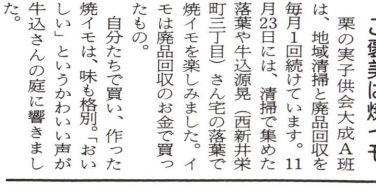 ご褒美は焼イモ
栗の実子供会大成A班
は、地域清掃と廃品回収を
毎月1回続けています。11
月23日には、清掃で集めた
落葉や牛込源晃（西新井栄
町三丁目）さん宅の落葉で
焼イモを楽しみました。イ
モは廃品回収のお金で買っ
たもの。
自分たちで買い、作った
焼イモは、味も格別。「おい
しい」というかわいい声が
牛込さんの庭に響きまし
た。